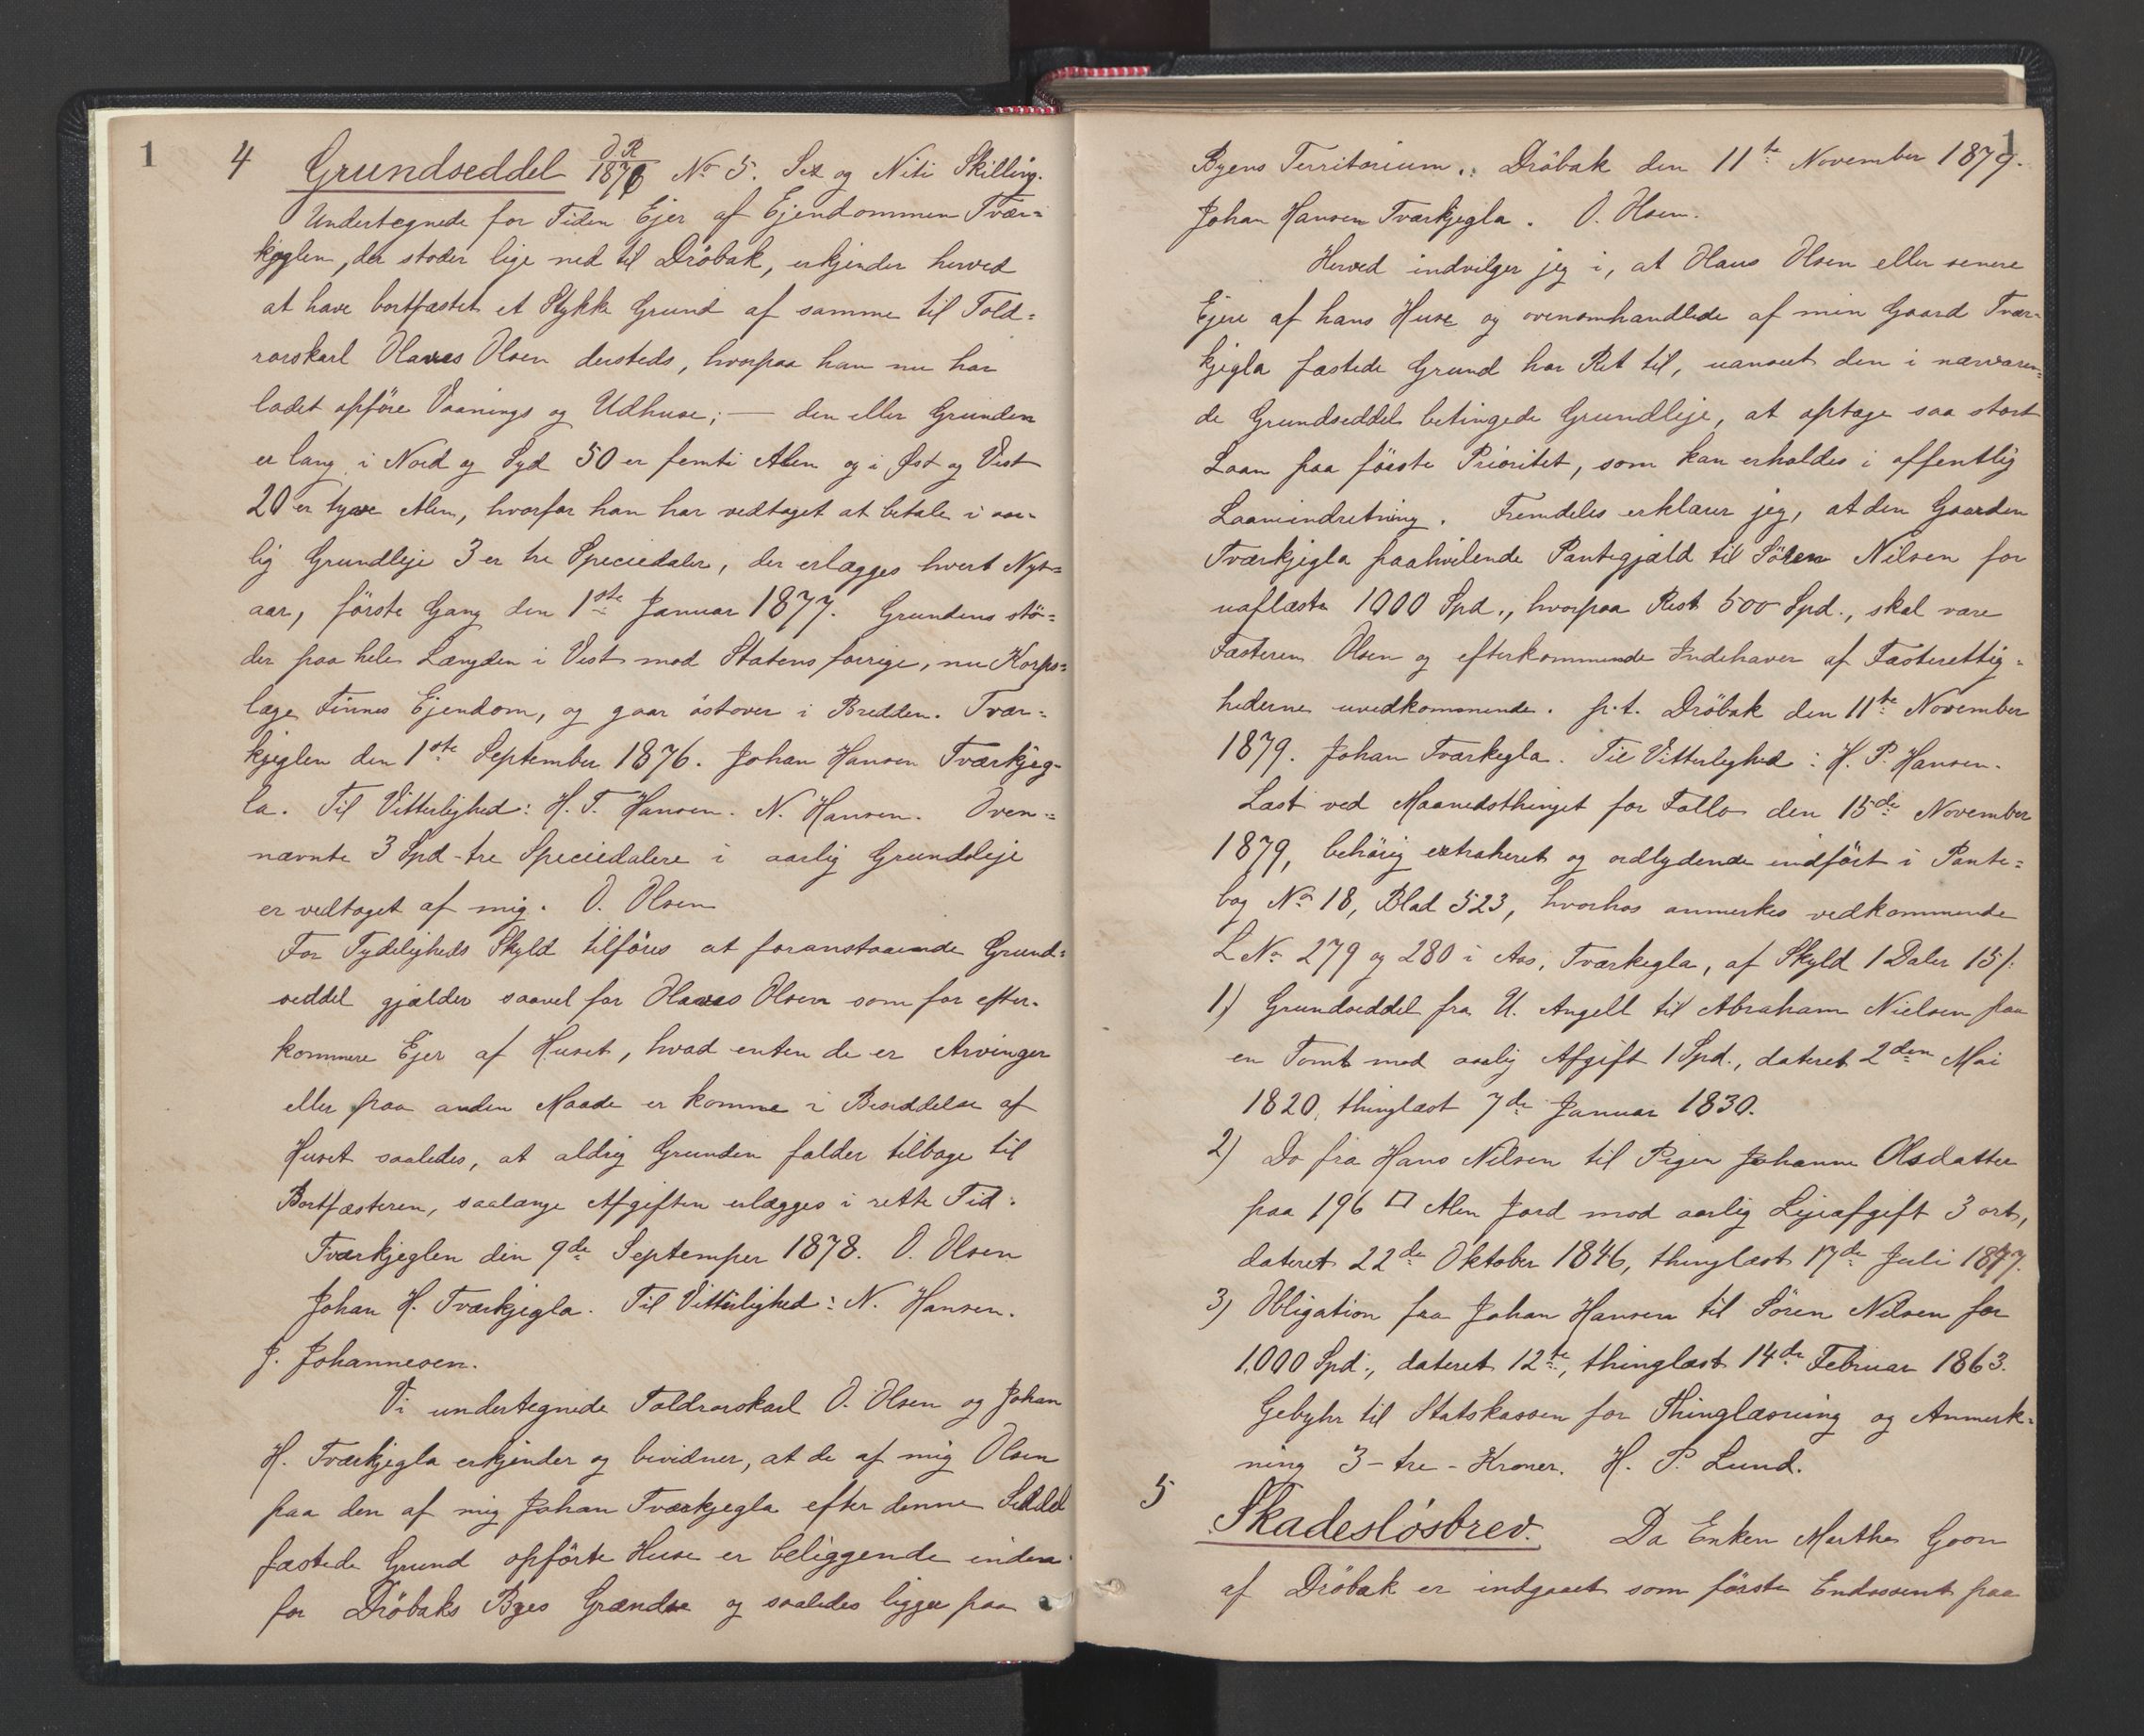 1
4 Grundseddel O R 1876 No 5. Sex og Niti Skilling.
Undertegnede for Tiden Ejer af Ejendommen Tvær=
kjeglen, der støder lige ned til Dröbak, erkjender herved
at have bortfæstet et Stykke Grund af samme til Told=
rorskarl Olaves Olsen dersteds, hvorpaa han nu har
ladet opföre Vaanings og Udhuse; — den eller Grunden
er lang i Nord og Syd 50 er femti Alen og i Øst og Vest
20 er tyve Alen, hvorfor han har vedtaget at betale i aar-
lig Grundleje 3 er tre Speciedaler, der erlægges hvert Nyt=
aar, förste Gang den 1ste Januar 1877. Grundens stö=
der paa hele Længden i Vest mod Statens forrige, nu Korps=
læge Finnes Ejendom, og gaar östover i Bredden. Tvær=
kjeglen den 1ste September 1876. Johan Hansen Tværkjeg-
la. Til Vitterlighed: H. T. Hansen. N. Hansen. Oven=
nævnte 3 Spd - tre Speciedalere i aarlig Grundleje
er vedtaget af mig. O. Olsen
For Tydeligheds Skyld tilföres at foranstaaende Grund=
seddel gjælder saavel for Olaves Olsen som for efter-
kommere Ejer af Huset, hvad enten de er Arvinger
eller paa anden Maade er komne i Besiddelse af
Huset saaledes, at aldrig Grunden falder tilbage til
Bortfæsteren, saalænge Afgiften erlægges i rette Tid.
Tværkjeglen den 9de Septemper 1878. O. Olsen
Johan H. Tværkjegla. Til Vitterlighed: N. Hansen.
J. Johannesen.
Vi undertegnede Toldrorskarl O. Olsen og Johan
H. Tværkjegla erkjender og bevidner, at de af mig Olsen
paa den af mig Johan Tværkjegla efter denne Seddel
fæstede Grund opförte Huse er beliggende inden-
for Dröbaks Byes Grændse og saaledes ligger paa
1
Byens Territorium. Dröbak den 11te November 1879.
Johan Hansen Tværkjegla. O. Olsen.
Herved indvilger jeg i, at Olaus Olsen eller senere
Ejere af hans Huse og ovenomhandlede af min Gaard Tvær-
kjegla fæstede Grund har Ret til, uanseet den i nærværen=
de Grundseddel betingede Grundleje, at optage saa stort
Laan paa förste Prioritet, som kan erholdes i offentlig
Laanindretning. Fremdeles erklærer jeg, at den Gaarden
Tværkjegla paahvilende Pantegjæld til Sören Nilsen for
uaflæste 1000 Spd., hvorpaa Rest 500 Spd., skal være
Fæsteren Olsen og efterkommende Indehaver af Fæsterettig=
hederne uvedkommende. p. t. Dröbak den 11te November
1879. Johan Tværkegla. Til Vitterlighed: H. P. Hansen.
Læst ved Maanedsthinget for Follo den 15de November
1879, behörig extraheret og ordlydende indfört i Pante=
bog No 18, Blad 523, hvorhos anmerkes vedkommende
L No 279 og 280 i Aas, Tværkegla, af Skyld 1 Daler 15 ſ:
1) Grundseddel fra U. Angell til Abraham Nielsen paa
en Tomt mod aarlig Afgift 1 Spd., dateret 2den Mai
1820, thinglæst 7de Januar 1830.
2) Do fra Hans Nilsen til Pigen Johanne Olsdatter
paa 196 □ Alen Jord mod aarlig Lejeafgift 3 ort,
dateret 22de Oktober 1846, thinglæst 17de Juli 1877.
3) Obligation fra Johan Hansen til Sören Nilsen for
1000 Spd., dateret 12te, thinglæst 14de Februar 1863.
Gebyhr til Statskassen for Thinglæsning og Anmerk=
ning 3 - tre - Kroner. H. P. Lund.
5 Skadeslösbrev. Da Enken Marthe Goon
af Dröbak er indgaaet som förste Endossent paa